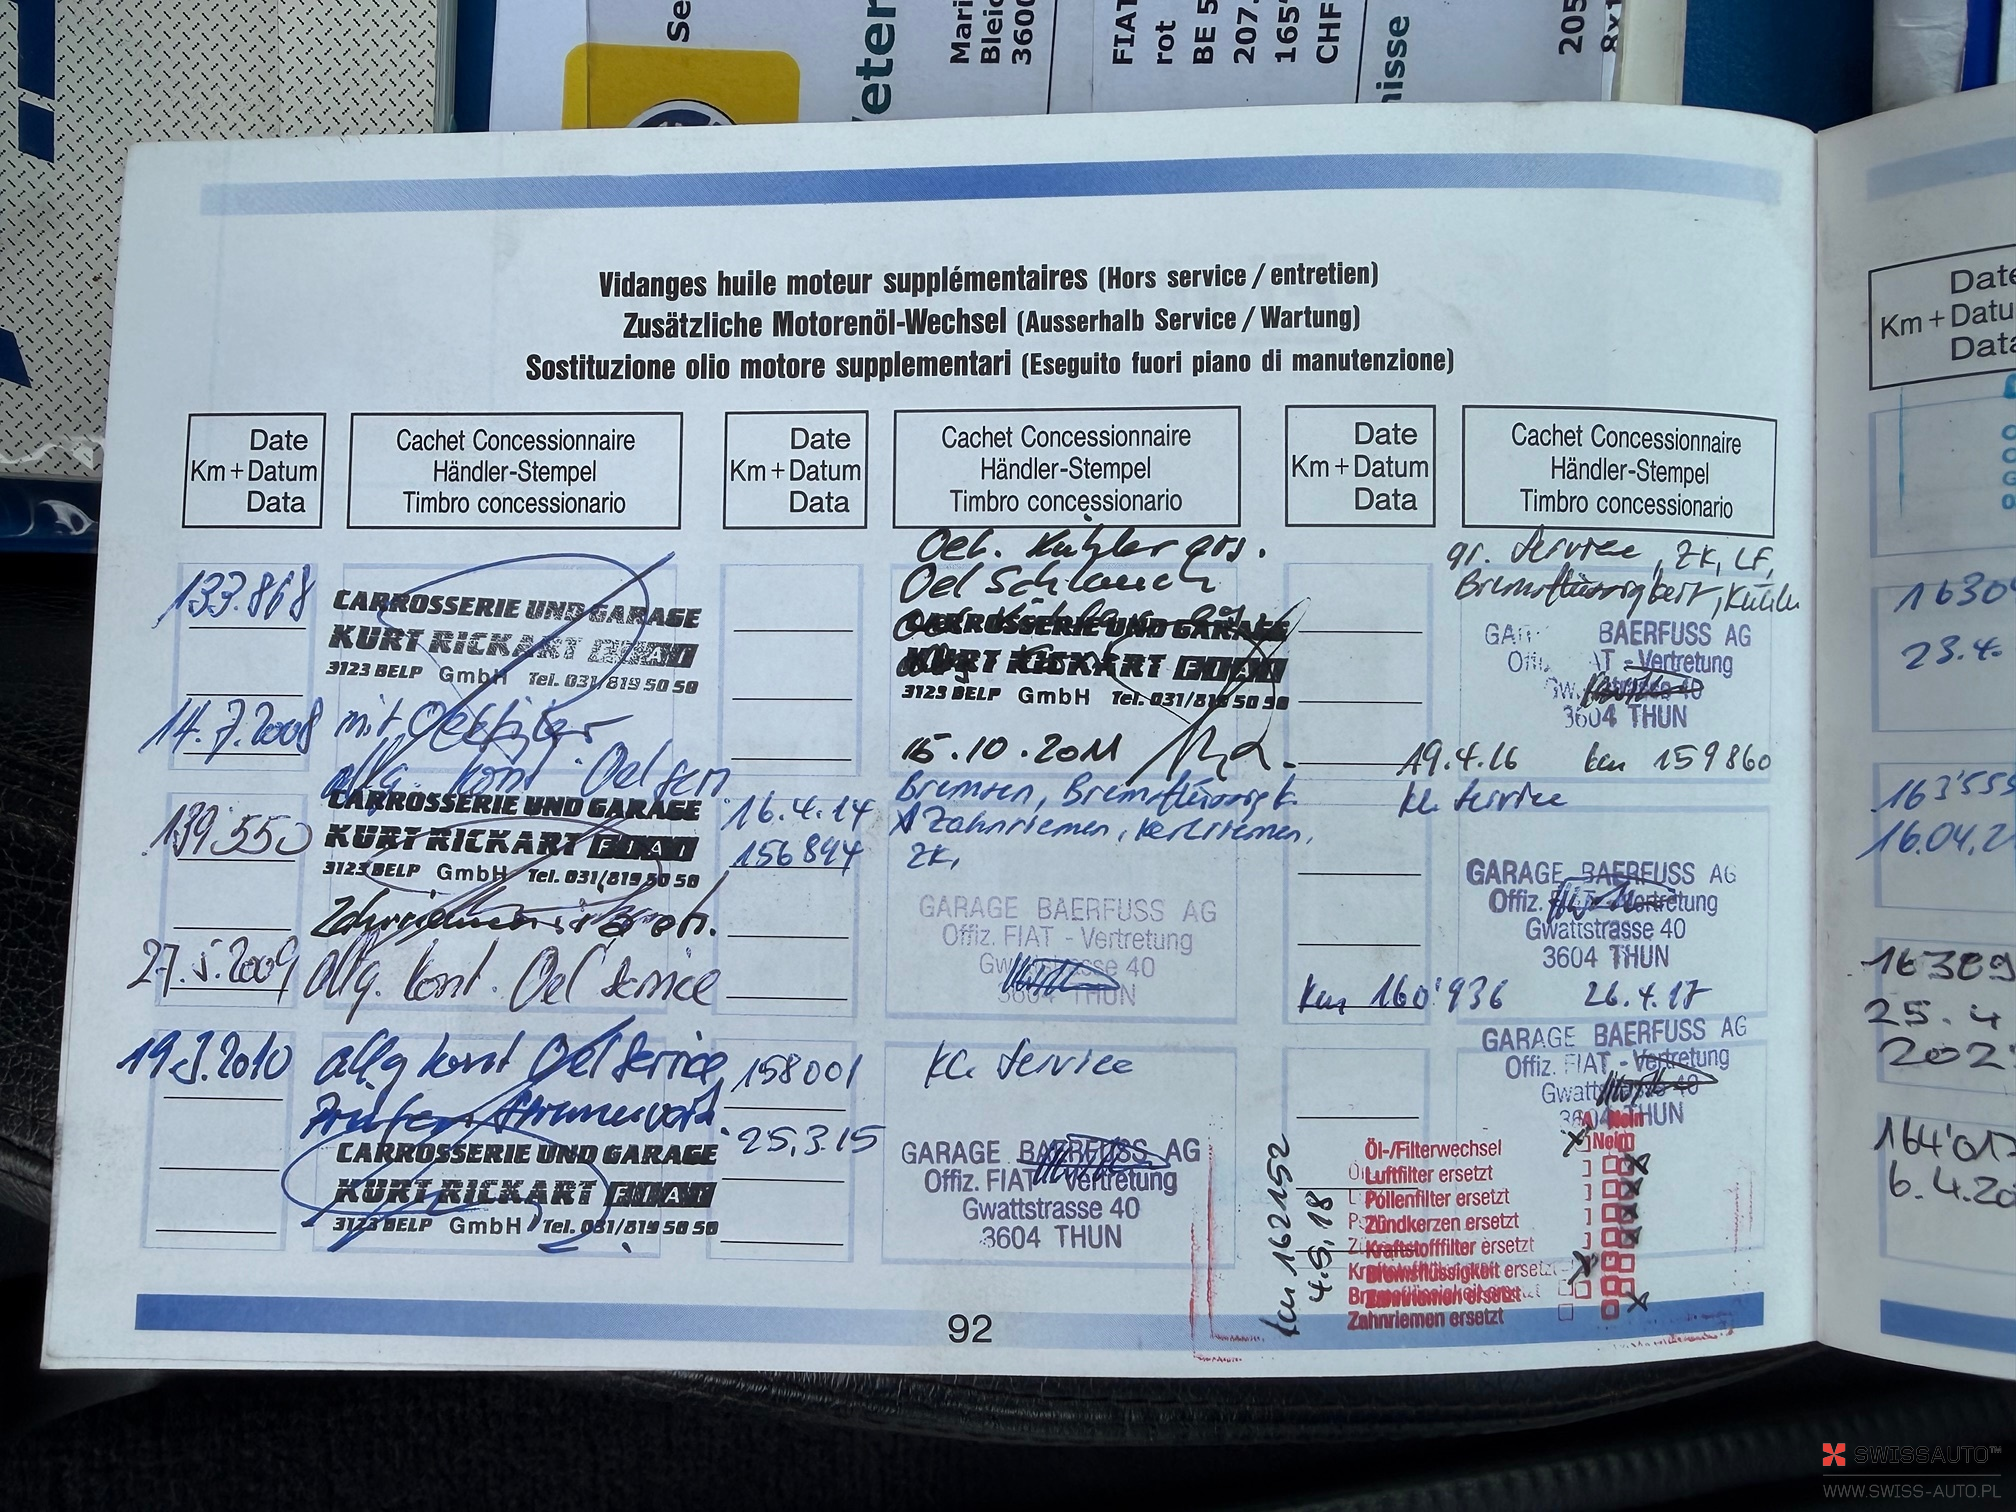 Se
eter
Mari
Bleic
3600
FIAT
rot
BE 5
207.
165'
CHF
nisse
205
8x1
Vidanges huile moteur supplémentaires (Hors service / entretien)
Zusätzliche Motorenöl-Wechsel (Ausserhalb Service / Wartung)
Sostituzione olio motore supplementari (Eseguito fuori piano di manutenzione)
Date
Km + Datum
Data
Cachet Concessionnaire
Händler-Stempel
Timbro concessionario
Date
Km + Datum
Data
Cachet Concessionnaire
Händler-Stempel
Timbro concessionario
Date
Km + Datum
Data
Cachet Concessionnaire
Händler-Stempel
Timbro concessionario
133.868
CARROSSERIE UND GARAGE
KURT RICKART FIAT
3123 BELP GmbH Tel. 031/819 50 50
14.7.2008 mit Oelfilter
allg. kont. Oel
139.550
CARROSSERIE UND GARAGE
KURT RICKART FIAT
3123 BELP GmbH Tel. 031/819 50 50
27.5.2009 allg. kont. Oel Service
19.3.2010 allg kont Oel Service
CARROSSERIE UND GARAGE
KURT RICKART FIAT
3123 BELP GmbH Tel. 031/819 50 50
Oel. Kühler ers.
Oel Schlauch
CARROSSERIE UND GARAGE
KURT RICKART FIAT
3123 BELP GmbH Tel. 031/819 50 50
15.10.2011
16.4.14
156894
Bremsen, Bremsflüssigk.
Zahnriemen, Keilriemen,
ZK,
GARAGE BAERFUSS AG
Offiz. FIAT - Vertretung
Gwattstrasse 40
3604 THUN
158001
25.3.15
kl. Service
GARAGE BAERFUSS AG
Offiz. FIAT - Vertretung
Gwattstrasse 40
3604 THUN
gr. Service, ZK, LF,
Bremsflüssigkeit, Kühler
BAERFUSS AG
Vertretung
3604 THUN
19.4.16 km 159860
kl. Service
GARAGE BAERFUSS AG
Offiz. FIAT - Vertretung
Gwattstrasse 40
3604 THUN
km 160'936 26.4.17
GARAGE BAERFUSS AG
Offiz. FIAT - Vertretung
Gwattstrasse 40
3604 THUN
km 162152
4.5.18
Nein
Öl-/Filterwechsel
Luftfilter ersetzt
Pollenfilter ersetzt
Zündkerzen ersetzt
Kraftstofffilter ersetzt
Bremsflüssigkeit ersetzt
Zahnriemen ersetzt
92
Date
Km + Datu
Data
1630
23.4.
163'555
16.04.2
16309
25.4
202
164'01
6.4.20
SWISSAUTO™
WWW.SWISS-AUTO.PL